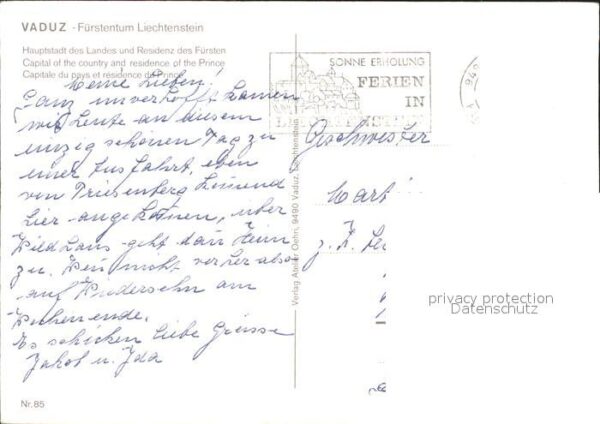 VADUZ - Fürstentum Liechtenstein
Hauptstadt des Landes und Residenz des Fürsten
Capital of the country and residence of the Prince
Capitale du pays et résidence du Prince
Meine Lieben!
Ganz unverhofft kamen
wir heute an diesem
einzig schönen Tag zu
einer Ausfahrt, eben
von Triesenberg
hier angekommen, über
Wildhaus geht dan Heim
zu. also
auf Wiedersehn am
Wochenende.
Es schicken liebe Grüsse
Jakob u. Ida
Nr. 85
Verlag Amider Oehri, 9490 Vaduz, Liechtenstein
SONNE ERHOLUNG
FERIEN
IN
LIECHTENSTEIN
949
Geschwister
privacy protection
Datenschutz